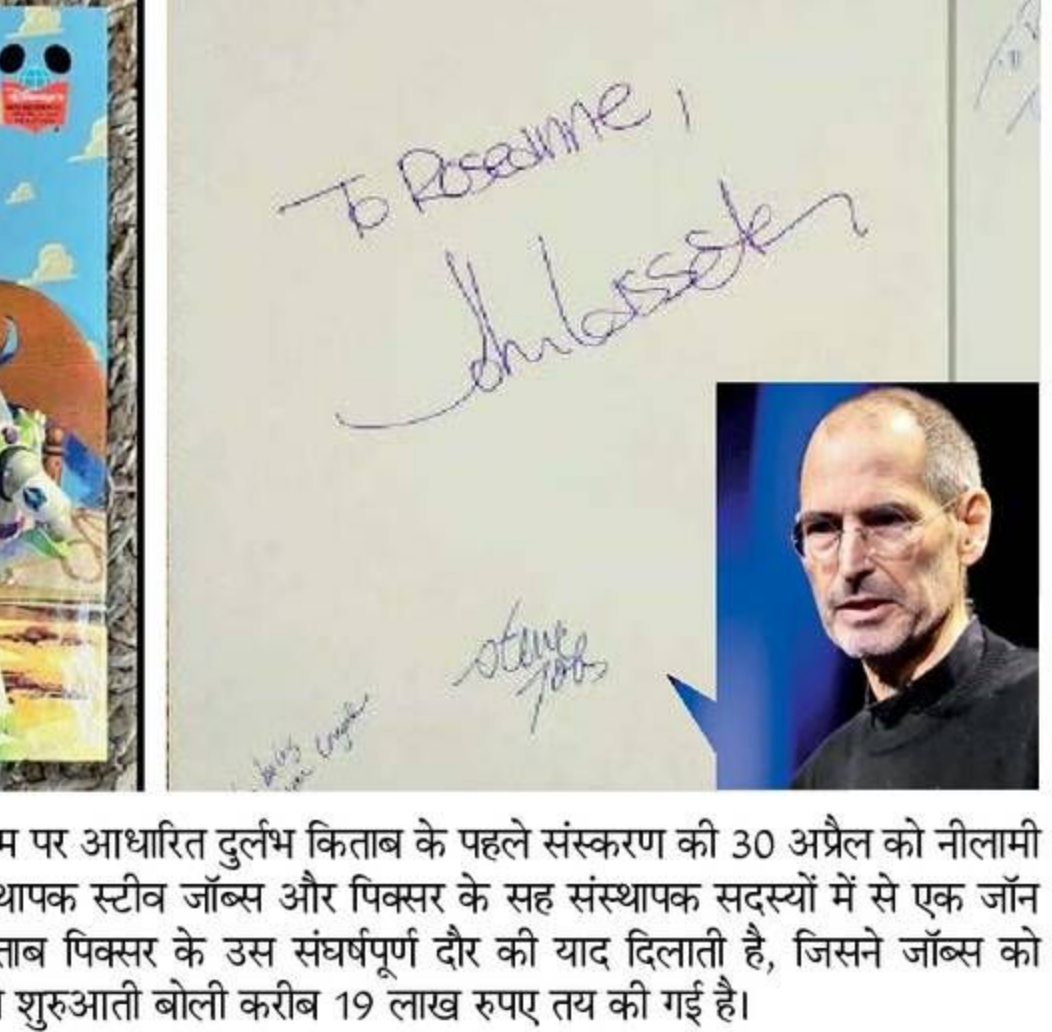 Disney's
To Roseanne,
John Lasseter
Steve
Jobs
म पर आधारित दुर्लभ किताब के पहले संस्करण की 30 अप्रैल को नीलामी
थापक स्टीव जॉब्स और पिक्सर के सह संस्थापक सदस्यों में से एक जॉन
ताब पिक्सर के उस संघर्षपूर्ण दौर की याद दिलाती है, जिसने जॉब्स को
शुरुआती बोली करीब 19 लाख रुपए तय की गई है।